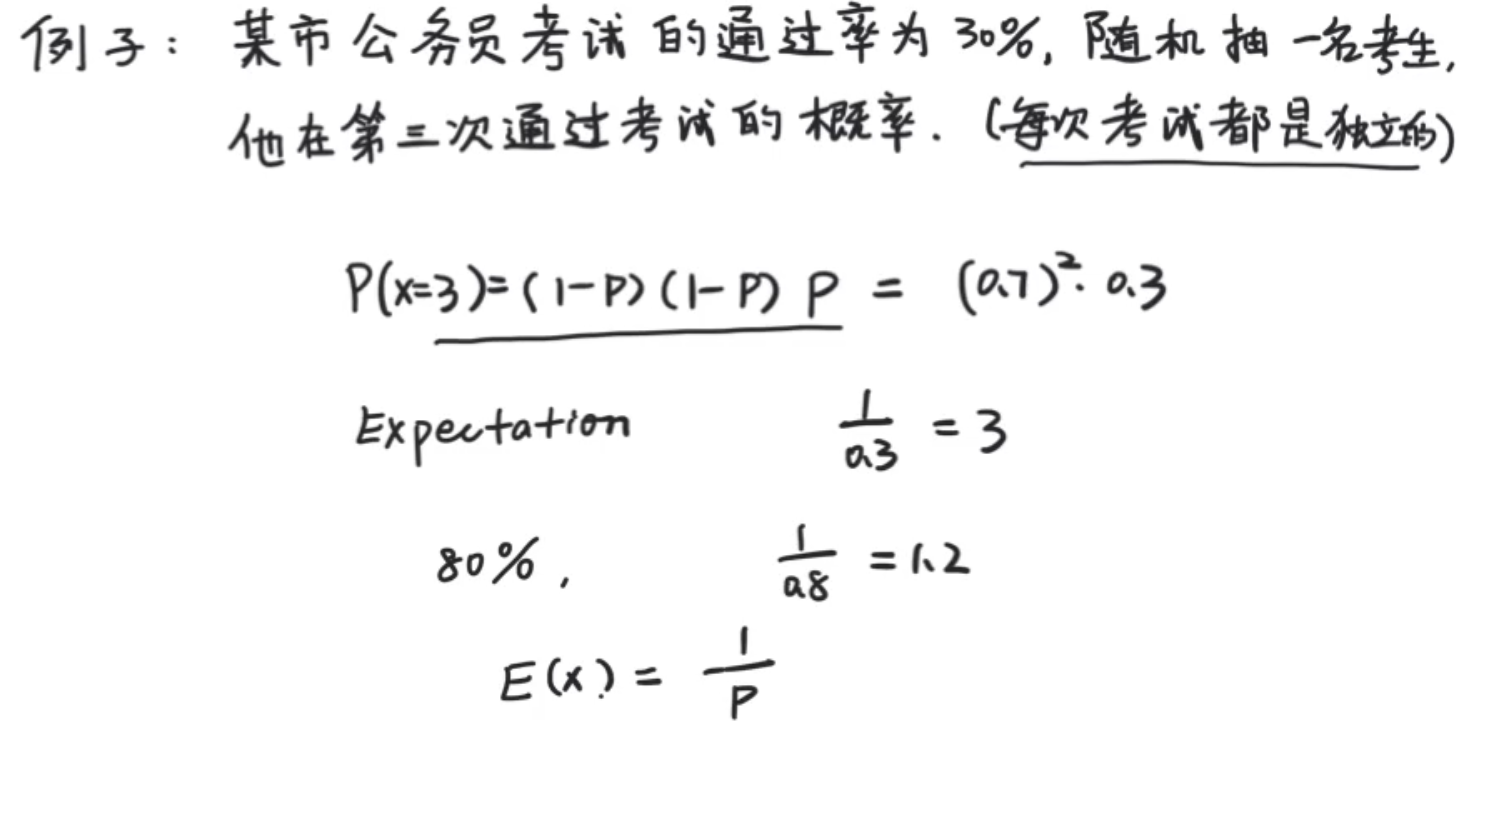 例子：某市公务员考试的通过率为30%, 随机抽一名考生,
他在第三次通过考试的概率.（每次考试都是独立的）
P(x=3)=(1-P)(1-P) P = (0.7)²· 0.3
Expectation 1/0.3 = 3
80%, 1/0.8 = 1.2
E(x) = 1/P